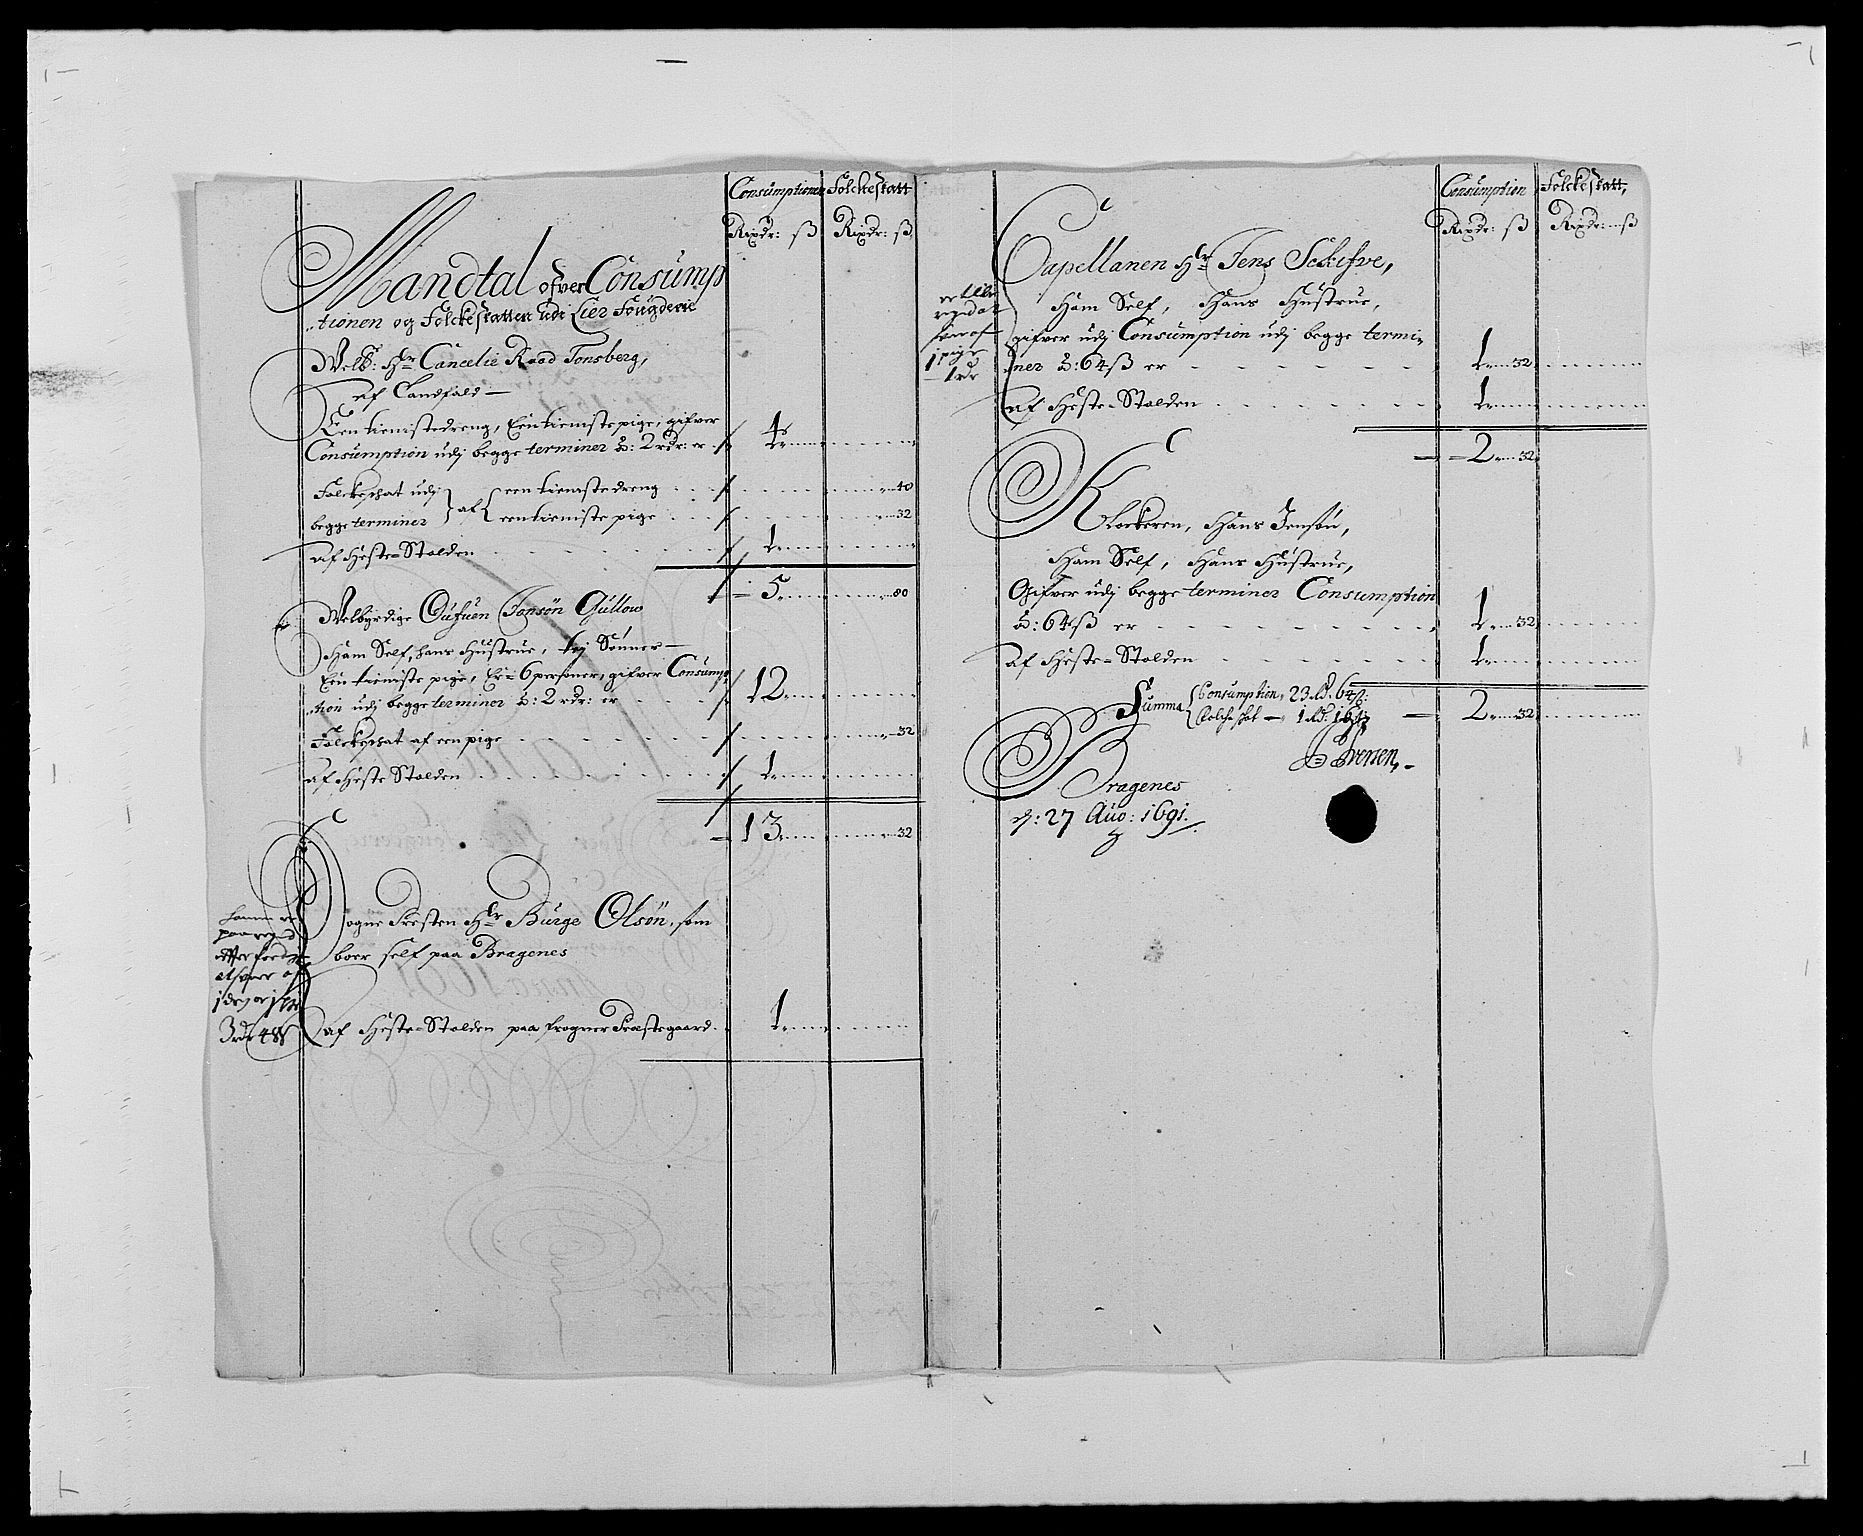 Consumptionen Folckeskatt
Rixdr: ß Rixdr: ß
Mandtal ofver Consump
tionen og Folckeskatten udi Lier Fougderie
Velb: Hr Cancelie Raad Tonsberg,
af Landfald —
Een tienistedreng, Een tieniste pige, gifver
Consumption udj begge terminer à: 2 rdr: er 4
Folckeschat udj begge terminer af
een tienistedreng 40
een tieniste pige 32
af Heste-Stalden 1
5 80
Velbyrdige Oufuen Jonsøn Gullow
Ham Self, hans Hustrue, tej Sønner —
Een tieniste pige, Er = 6 personer, gifver Consump
tion udj begge terminer à: 2 rdr: er 12
Folckeschat af een pige 32
af Heste Stalden 1
13 32
Sogne Presten Hr Burge Olsøn, som
boer self paa Bragenes
3 rdr 48 ß
af Heste-Stalden paa frogner Præstegaard 1
Consumption Folckeskatt,
Rixdr: ß Rixdr: ß
Capellanen Hr Jens Schifve,
Ham Self, Hans Hustrue,
gifver udj Consumption udj begge termi
ner à: 64 ß er 1 32
af Heste-Stalden 1
2 32
1 pige
1 rdr
Klockeren, Hans Jensøn,
Ham Self, Hans Hustrue,
Gifver udj begge terminer Consumption
à: 64 ß er 1 32
af Heste-Stalden 1
2 32
Summa Consumption, 23 Rd. 64 ß:
Folcheskat — 1 Rd: 16 ß
Iversen,
Bragenes
d: 27 Aug: 1691.